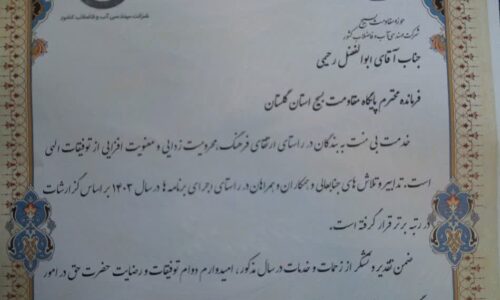 شرکت مهندسی آب و فاضلاب کشور
حوزه مقاومت بسیج
شرکت مهندسی آب و فاضلاب کشور
جناب آقای ابوالفضل رحیمی
فرمانده محترم پایگاه مقاومت بسیج استان گلستان
خدمت بی منت به بندگان در راستای ارتقای فرهنگ، محرومیت زدایی و معنویت افزایی از توفیقات الهی
است. تدابیر و تلاش های جنابعالی و همکاران و همراهان در راستای اجرای برنامه ها در سال ۱۴۰۳ بر اساس گزارشات
در رتبه برتر قرار گرفته است.
ضمن تقدیر و تشکر از زحمات و خدمات در سال مذکور، امیدوارم دوام توفیقات و رضایت حضرت حق در امور